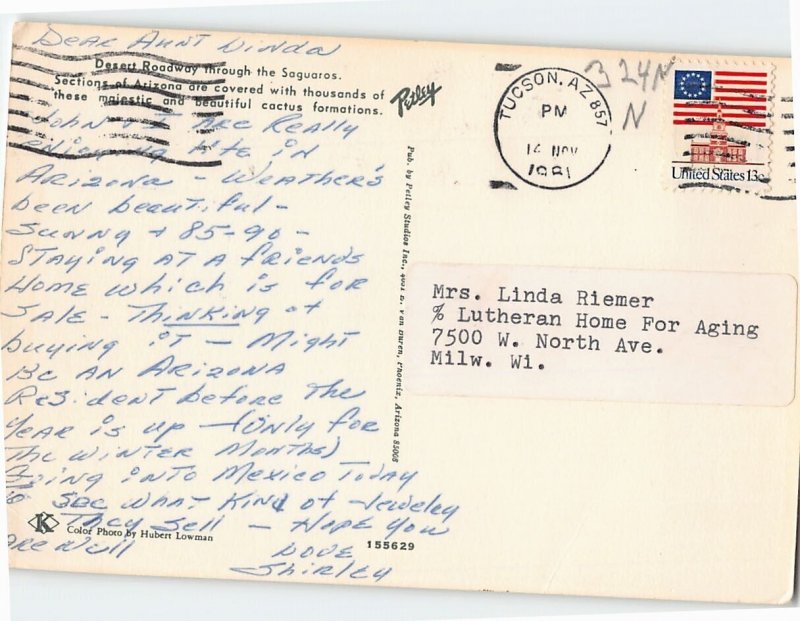 Dear Aunt Linda
Desert Roadway through the Saguaros.
Sections of Arizona are covered with thousands of
these majestic and beautiful cactus formations.
Petley
John & I are Really
enjoying life in
Arizona - Weather's
been beautiful -
Sunny + 85-90 -
Staying at a friends
Home which is for
Sale - Thinking of
buying it - Might
Be an Arizona
Resident before the
year is up - (Only for
the winter months)
Going into Mexico Today
to see what kind of Jewelry
They sell - Hope you
are well
Love
Shirley
K
Color Photo by Hubert Lowman
155629
Pub. by Petley Studios Inc., 4051 E. Van Buren, Phoenix, Arizona 85008
TUCSON, AZ 857
PM
14 NOV
1981
3 24N
N
United States 13c
Mrs. Linda Riemer
% Lutheran Home For Aging
7500 W. North Ave.
Milw. Wi.